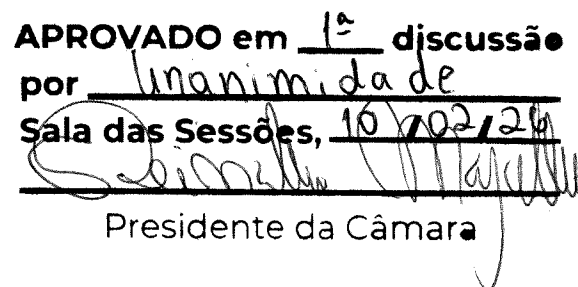 APROVADO em 1ª discussão
por unanimidade
Sala das Sessões, 10/02/26
Presidente da Câmara